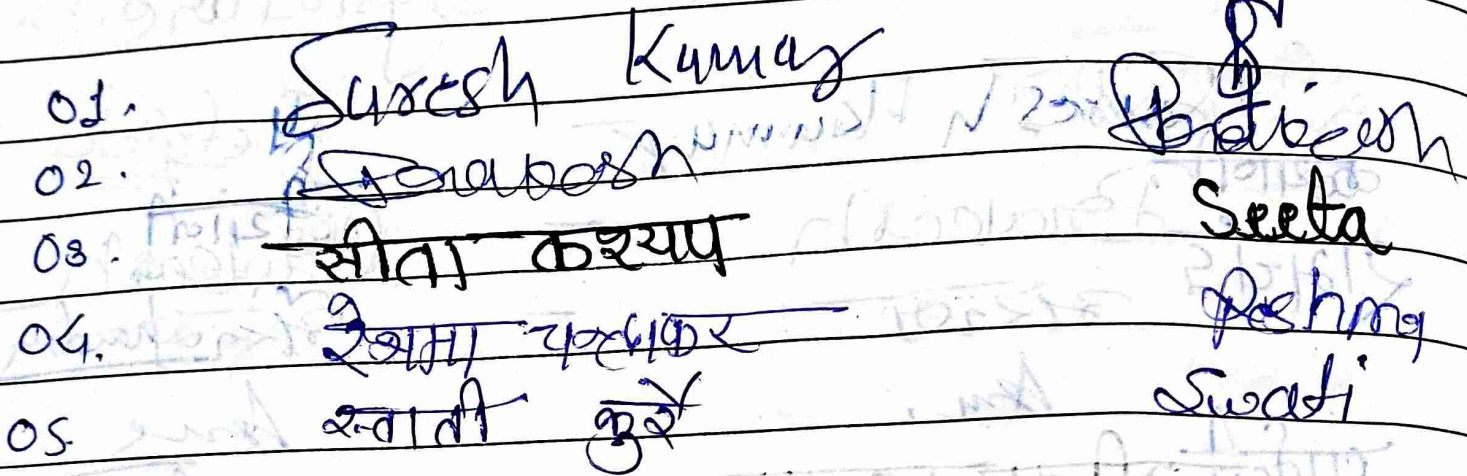 01. Suresh Kumar
02.
03. सीता कश्यप Seeta
04. रेशमा चन्द्राकर Reshma
05 स्वाती कुर्रे Swati